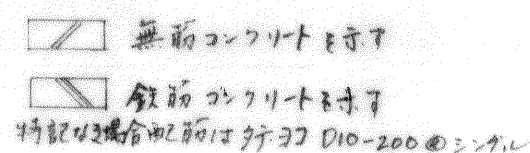 無筋コンクリートを示す
鉄筋コンクリートを示す
特記なき場合配筋はタテ、ヨコ D10-200@シングル